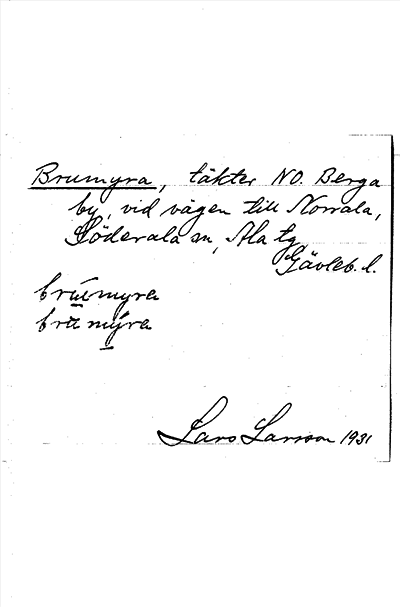 Brumyra, täkter NO. Berga
by, vid vägen till Norrala,
Söderala sn, Ala tg
Gävleb. l.
brúmyra
bru mýra
Lars Larsson 1931